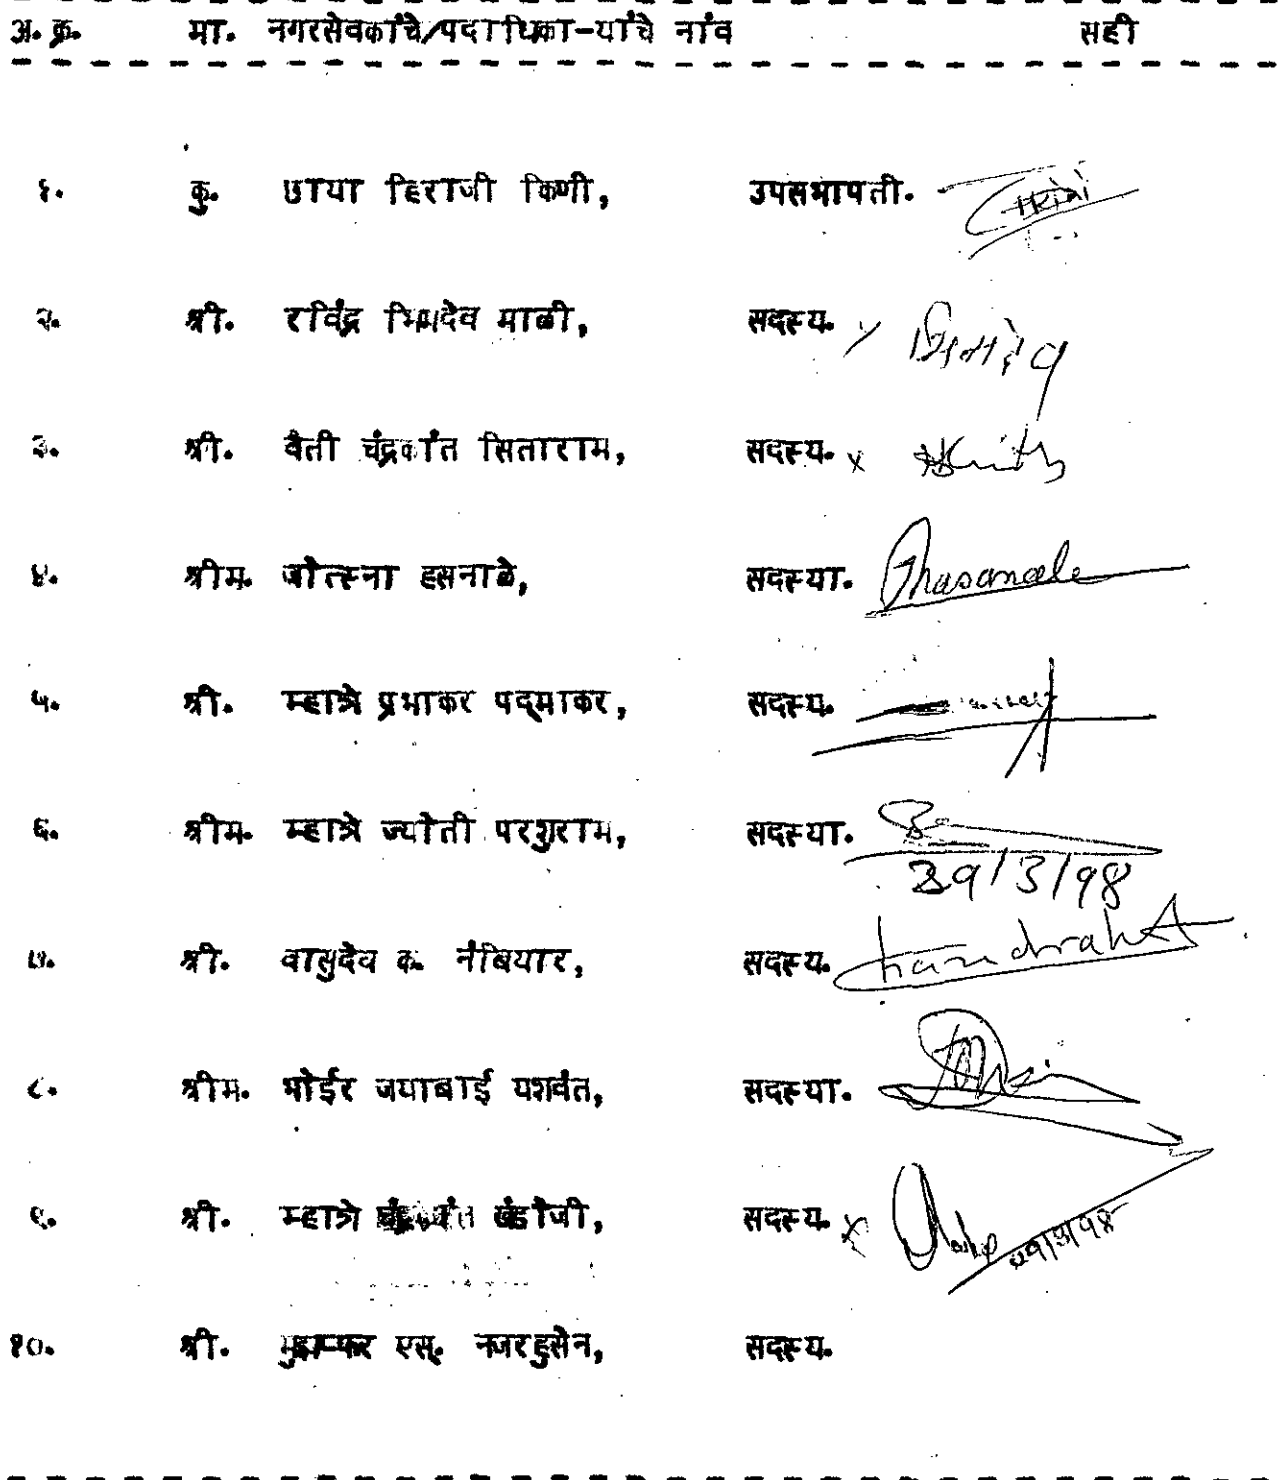 अ. क्र. मा. नगरसेवकांचे/पदाधिका-यांचे नांव सही
१. कु. छाया हिराजी किणी, उपसभापती.
२. श्री. रविंद्र भिमदेव माळी, सदस्य.
३. श्री. वैती चंद्रकांत सिताराम, सदस्य.
४. श्रीम. जोत्स्ना हसनाळे, सदस्या. Jhasanale
५. श्री. म्हात्रे प्रभाकर पद्माकर, सदस्य.
६. श्रीम. म्हात्रे ज्योती परशुराम, सदस्या.
29/3/98
७. श्री. वासुदेव क. नंबियार, सदस्य.
८. श्रीम. भोईर जयाबाई यशवंत, सदस्या.
९. श्री. म्हात्रे खंडोजी, सदस्य. २१/३/९८
१०. श्री. मुझफ्फर एस्. नजरहुसेन, सदस्य.